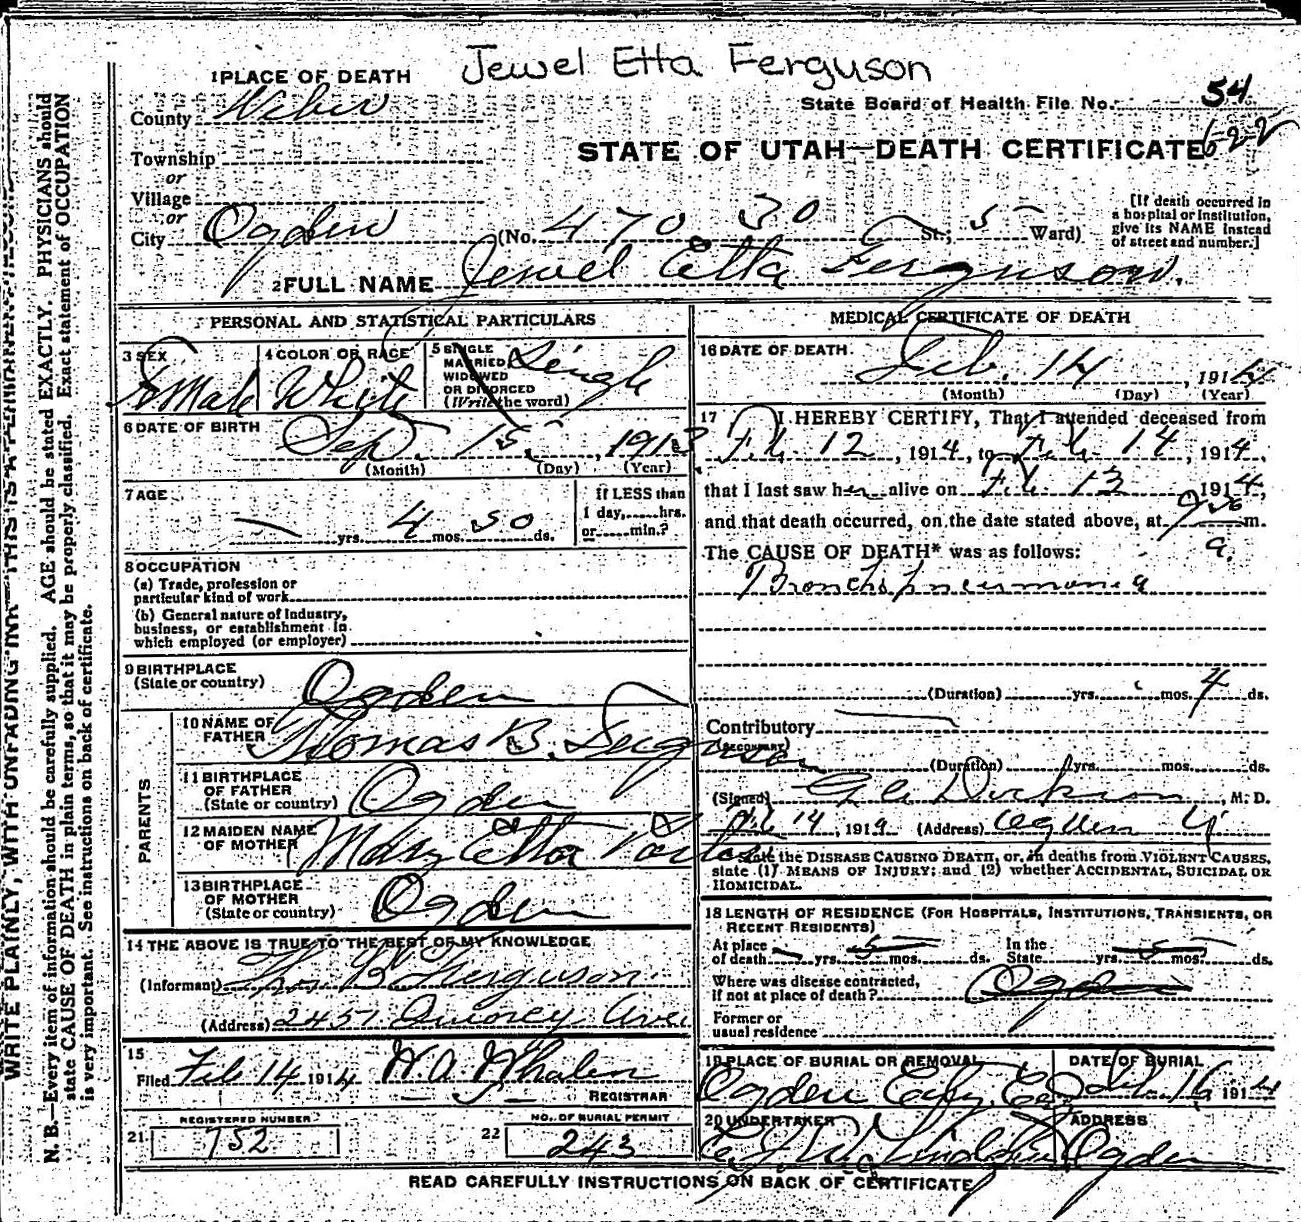 Jewel Etta Ferguson
1 PLACE OF DEATH
County Weber
State Board of Health File No. 54
622
STATE OF UTAH—DEATH CERTIFICATE
Township
or
Village
or
City Ogden (No. 470 30 St.; 5 Ward)
[If death occurred in
a hospital or institution,
give its NAME instead
of street and number.]
2 FULL NAME Jewel Etta Ferguson.
PERSONAL AND STATISTICAL PARTICULARS
3 SEX
Female
4 COLOR OR RACE
White
5 SINGLE
MARRIED,
WIDOWED
OR DIVORCED
(Write the word)
Single
6 DATE OF BIRTH
Sep. 15, 1913
(Month) (Day) (Year)
7 AGE
yrs. 4 mos. 30 ds.
If LESS than
1 day, hrs.
or min.?
8 OCCUPATION
(a) Trade, profession or
particular kind of work
(b) General nature of Industry,
business, or establishment in
which employed (or employer)
9 BIRTHPLACE
(State or country)
Ogden
PARENTS
10 NAME OF
FATHER
Thomas B. Ferguson
11 BIRTHPLACE
OF FATHER
(State or country)
Ogden
12 MAIDEN NAME
OF MOTHER
Mary Etta
13 BIRTHPLACE
OF MOTHER
(State or country)
Ogden
14 THE ABOVE IS TRUE TO THE BEST OF MY KNOWLEDGE
(Informant) Thos. B Ferguson
(Address) 2451 Quincy Ave.
15
Filed Feb 14 1914 W A Whalen
REGISTRAR
REGISTERED NUMBER
21 752
NO. OF BURIAL PERMIT
22 243
MEDICAL CERTIFICATE OF DEATH
16 DATE OF DEATH.
Feb. 14, 1914
(Month) (Day) (Year)
17 I HEREBY CERTIFY, That I attended deceased from
Feb. 12, 1914, to Feb. 14, 1914,
that I last saw her alive on Feb. 13 1914,
and that death occurred, on the date stated above, at 9 30 a. m.
The CAUSE OF DEATH* was as follows:
Broncho pneumonia
(Duration) yrs. mos. 4 ds.
Contributory
(SECONDARY)
(Duration) yrs. mos. ds.
(Signed) Dickson, M. D.
Feb 14, 1914 (Address) Ogden U
State the DISEASE CAUSING DEATH, or, in deaths from VIOLENT CAUSES,
state (1) MEANS OF INJURY; and (2) whether ACCIDENTAL, SUICIDAL OR
HOMICIDAL.
18 LENGTH OF RESIDENCE (FOR HOSPITALS, INSTITUTIONS, TRANSIENTS, OR
RECENT RESIDENTS)
At place
of death yrs. 5 mos. ds.
In the
State yrs. 5 mos. ds.
Where was disease contracted,
if not at place of death? Ogden
Former or
usual residence
19 PLACE OF BURIAL OR REMOVAL
Ogden City Cem
DATE OF BURIAL
Feb. 16 1914
20 UNDERTAKER
Lindquist
ADDRESS
Ogden
READ CAREFULLY INSTRUCTIONS ON BACK OF CERTIFICATE
WRITE PLAINLY, WITH UNFADING INK—THIS IS A PERMANENT RECORD
N. B.—Every item of information should be carefully supplied. AGE should be stated EXACTLY. PHYSICIANS should
state CAUSE OF DEATH in plain terms, so that it may be properly classified. Exact statement of OCCUPATION
is very important. See instructions on back of certificate.